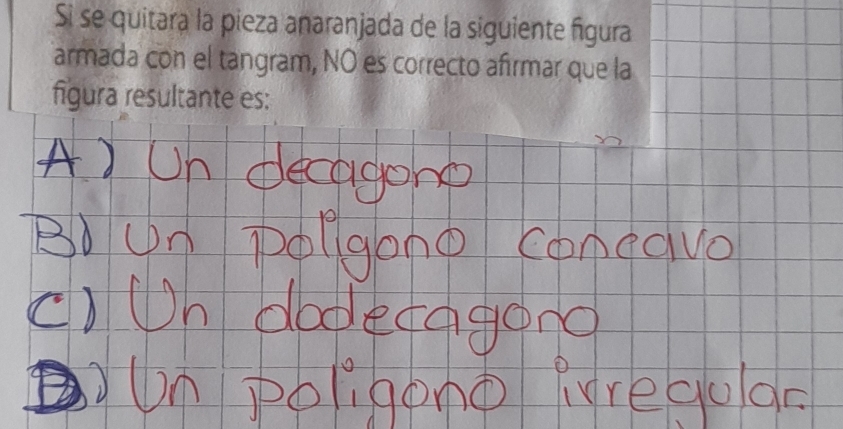 Si se quitara la pieza anaranjada de la siguiente figura
armada con el tangram, NO es correcto afirmar que la
figura resultante es:
A) Un decagono
B) Un poligono concavo
C) Un dodecagono
D) Un poligono irregular